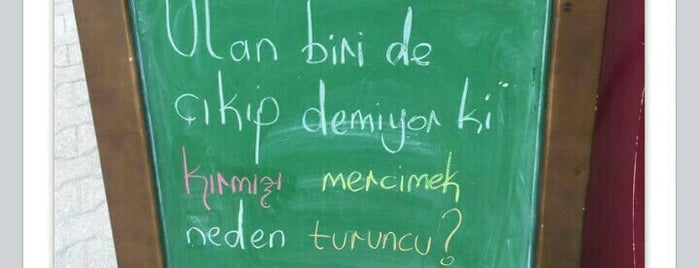 Ulan biri de
çıkıp demiyor ki
kırmızı mercimek
neden turuncu?